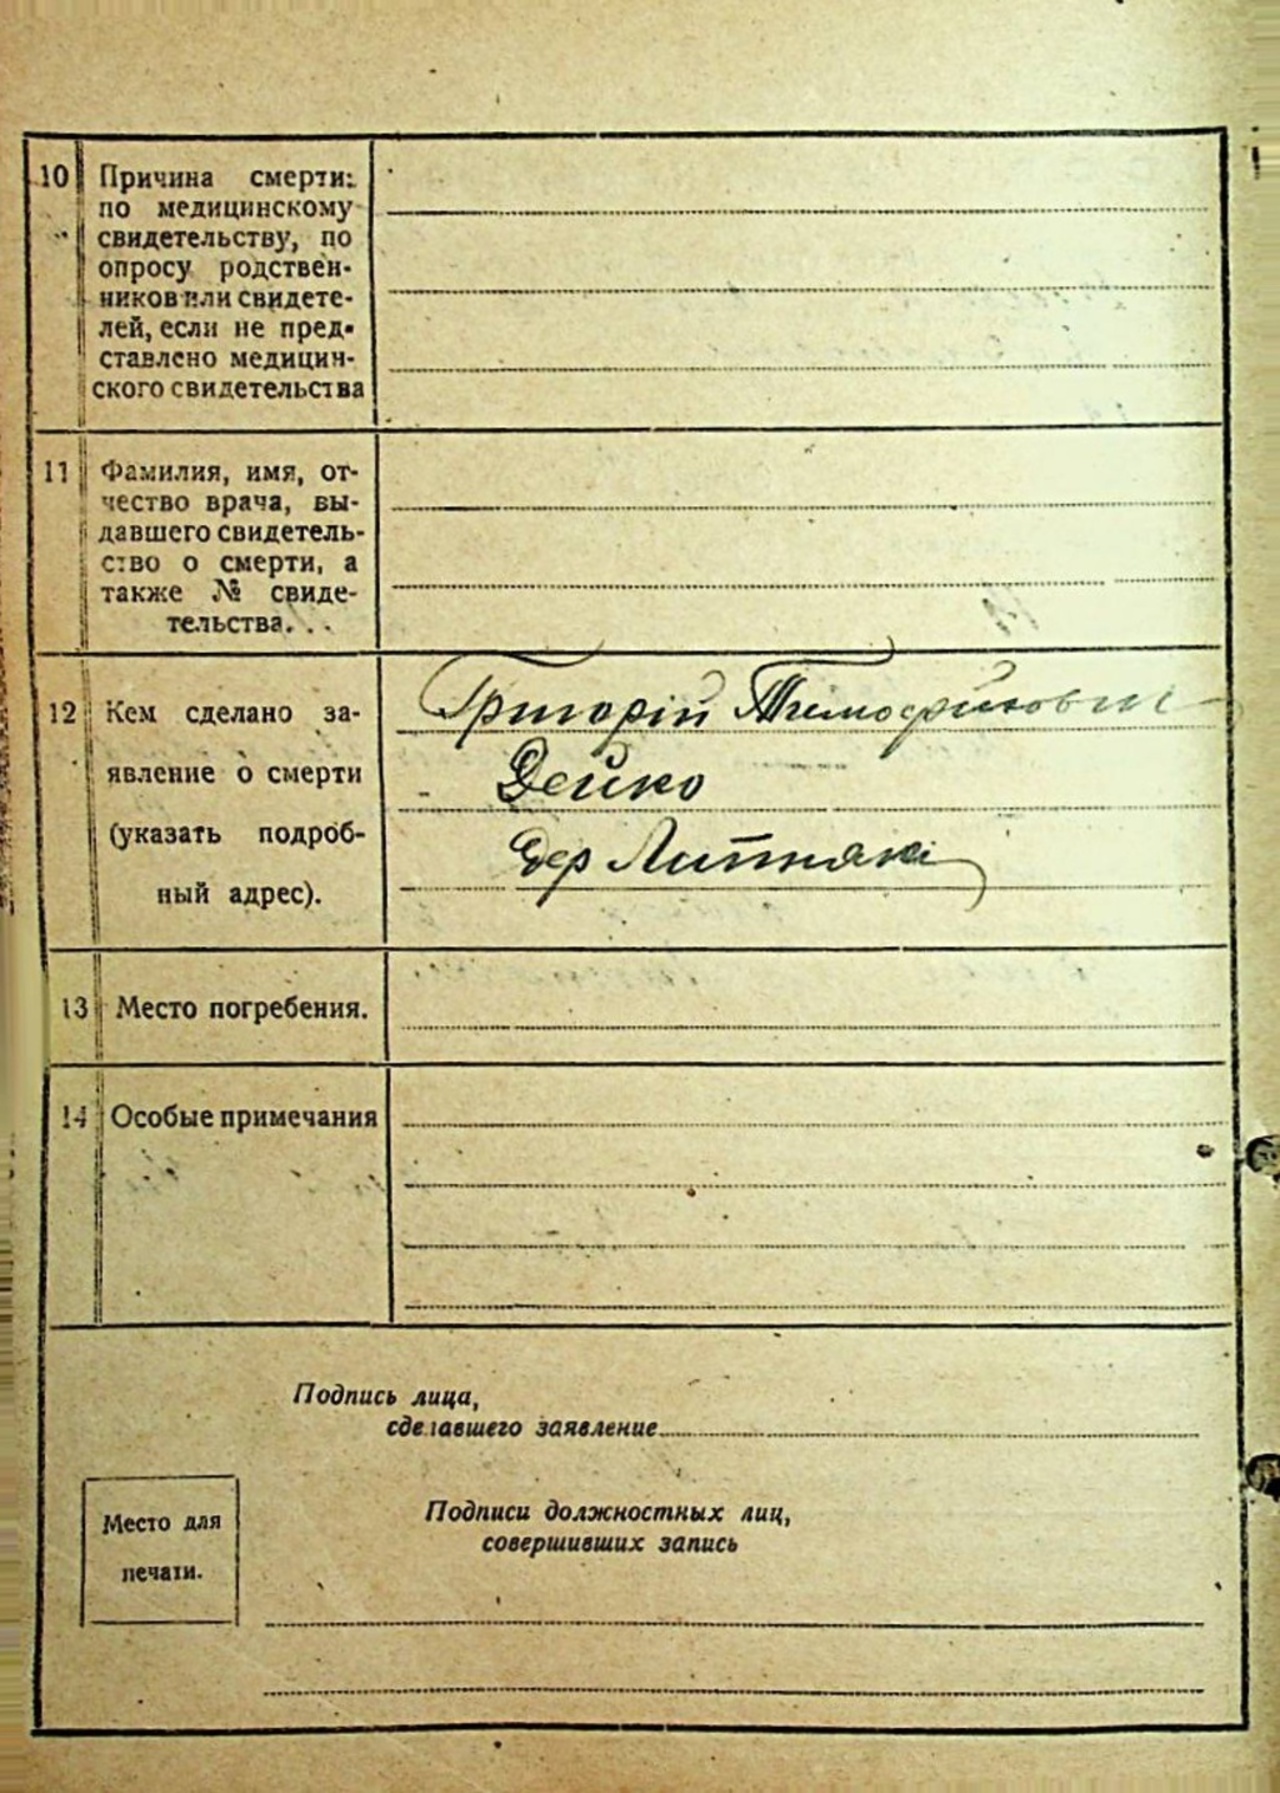 10 Причина смерти:
по медицинскому
свидетельству, по
опросу родствен-
ников или свидете-
лей, если не пред-
ставлено медицин-
ского свидетельства
11 Фамилия, имя, от-
чество врача, вы-
давшего свидетель-
ство о смерти, а
также № свиде-
тельства. . .
12 Кем сделано за-
явление о смерти
(указать подроб-
ный адрес).
Григорій Тимофийович
Дейко
дер Липняки
13 Место погребения.
14 Особые примечания
Подпись лица,
сделавшего заявление
Место для
печати.
Подписи должностных лиц,
совершивших запись